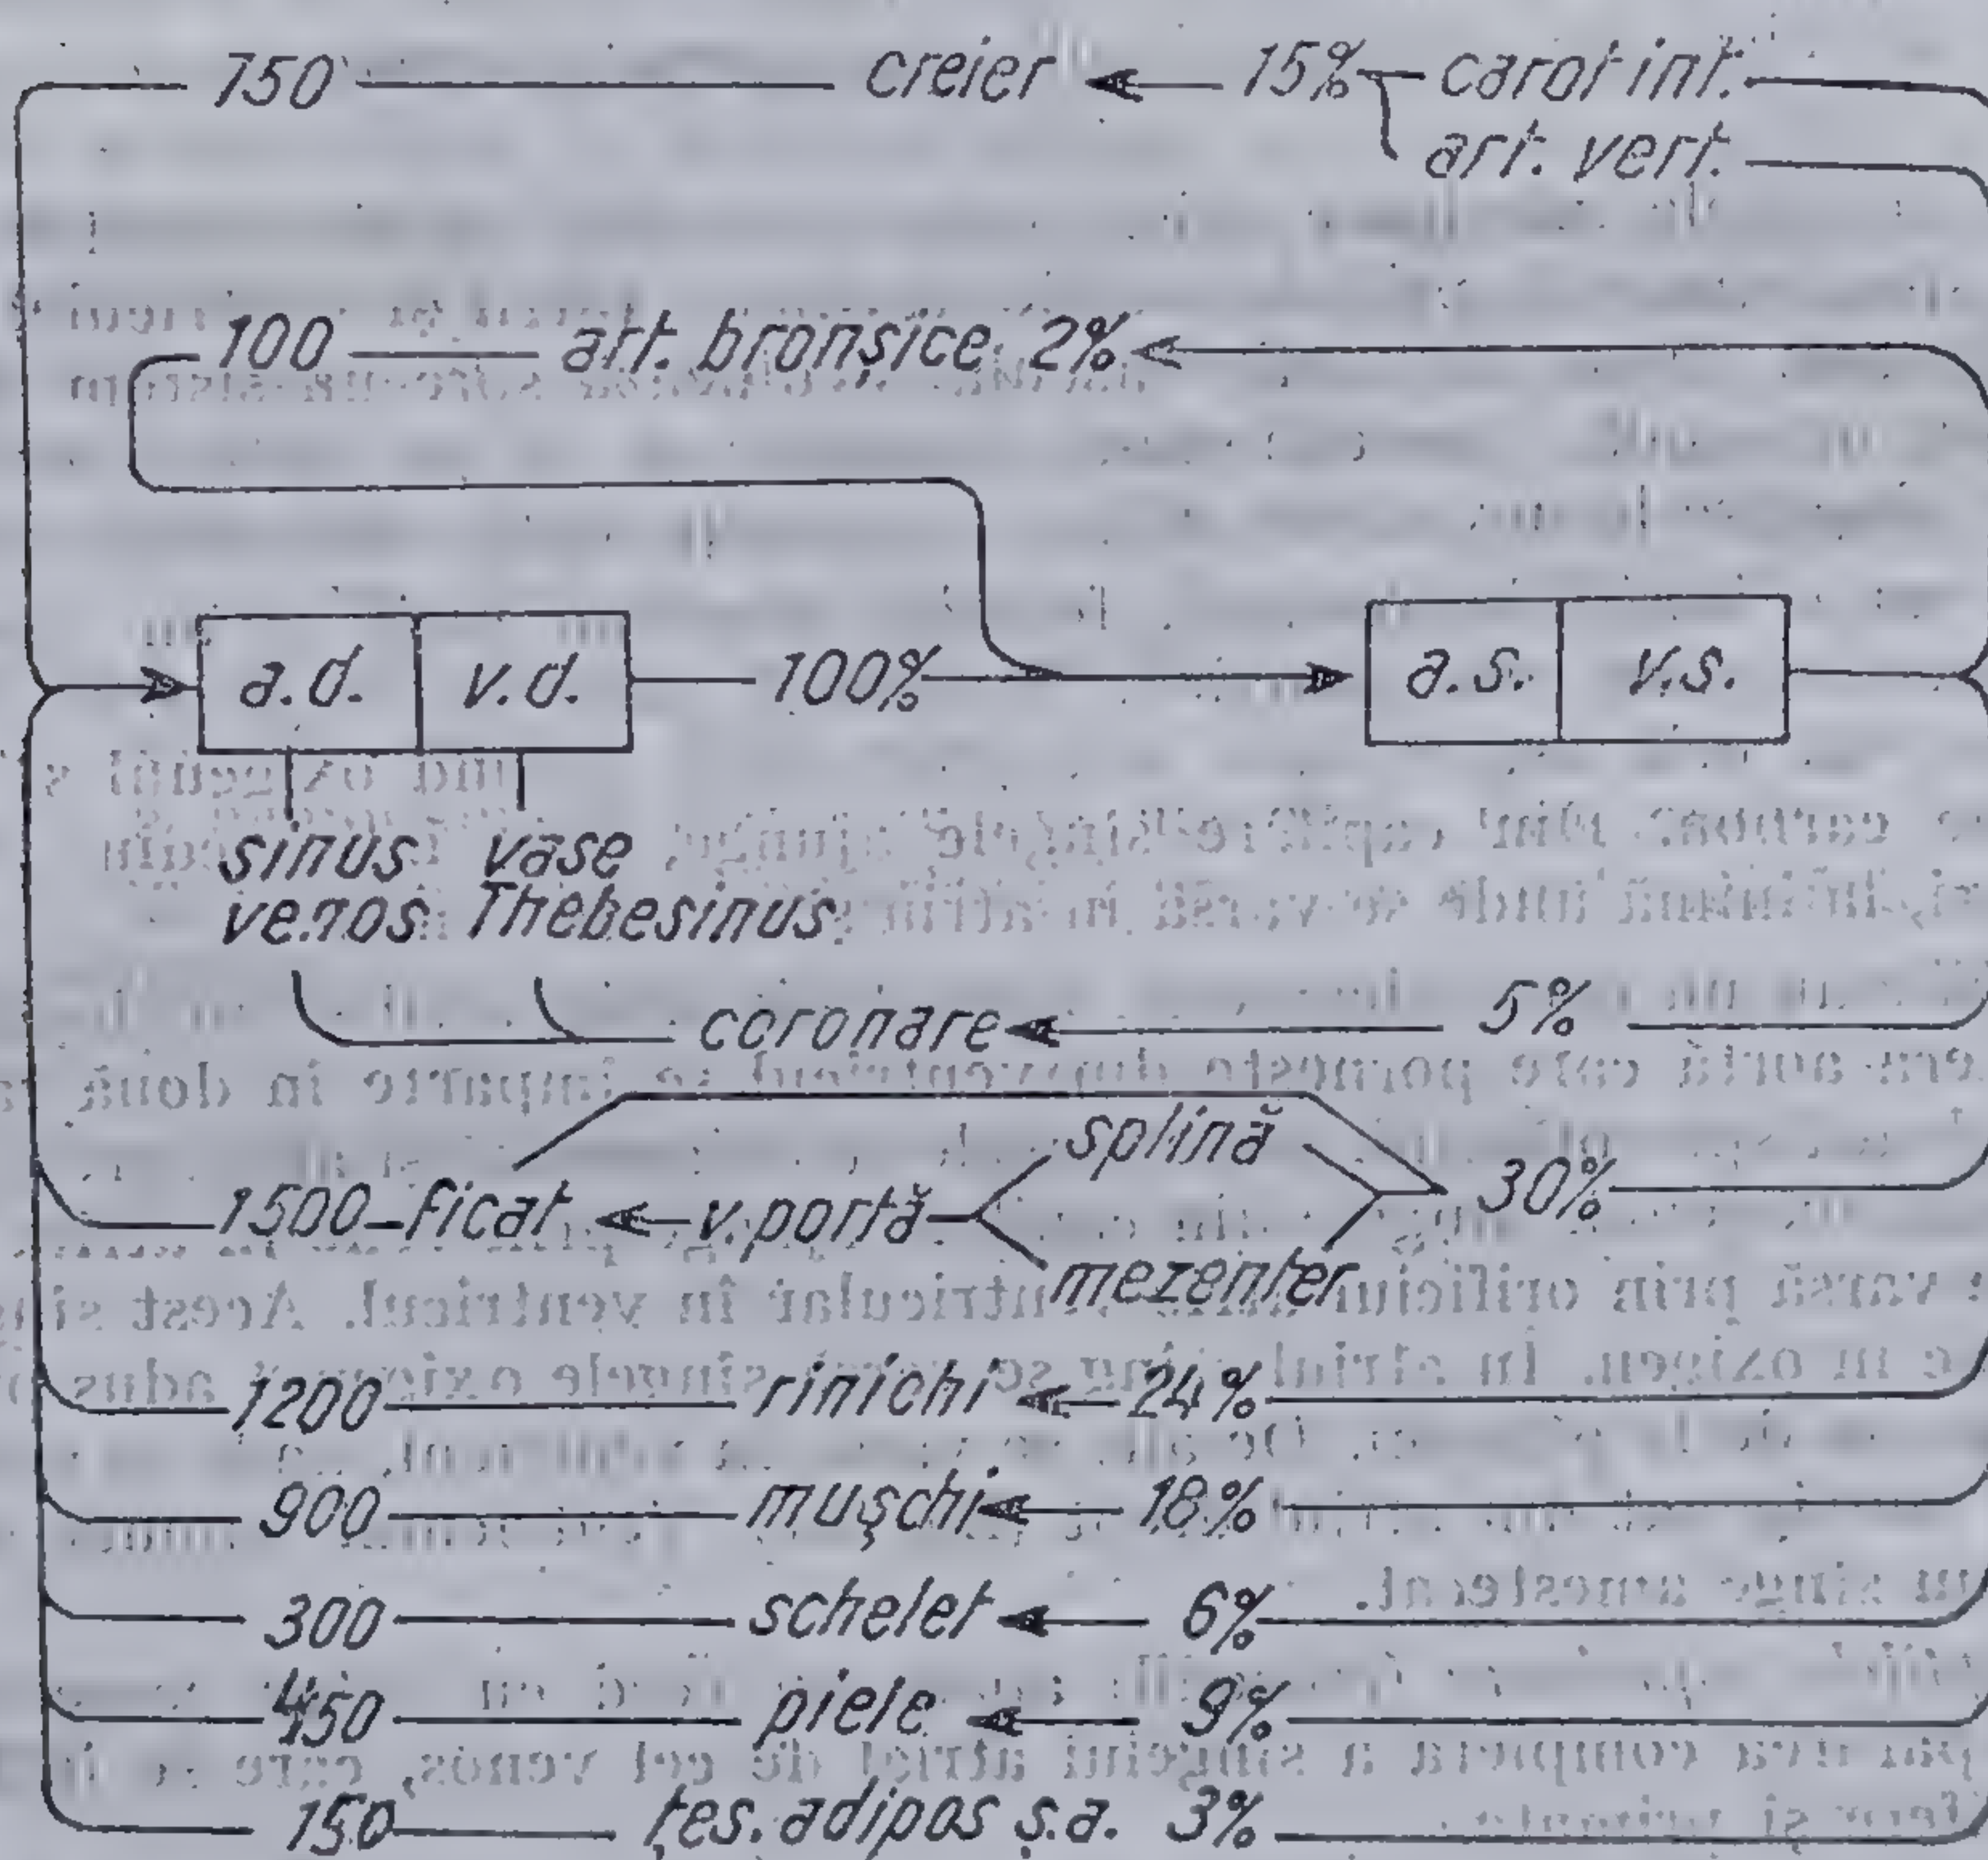 750 creier 15% carot int.
art. vert.
100 art. bronșice 2%
a.d. v.d. 100% a.s. v.s.
sinus vase
venos Thebesinus
coronare 5%
splină
1500 ficat v. portă 30%
mezenter
1200 rinichi 24%
900 mușchi 18%
300 schelet 6%
450 piele 9%
150 țes. adipos ș.a. 3%